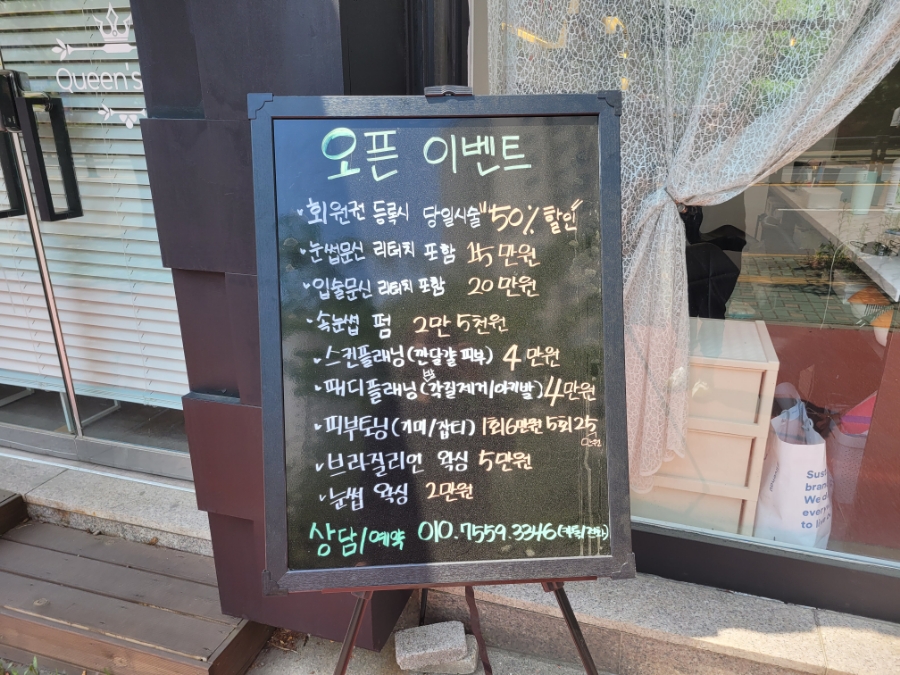 Queen's
오픈 이벤트
회원권 등록시 당일시술 "50% 할인"
눈썹문신 리터치 포함 15만원
입술문신 리터치 포함 20만원
속눈썹 펌 2만 5천원
스킨플래닝(깐달걀 피부) 4만원
패디플래닝(각질제거/아기발) 4만원
피부토닝(기미/잡티) 1회6만원 5회25만원
브라질리언 왁싱 5만원
눈썹 왁싱 2만원
상담/예약 010.7559.3346
Sus
bran
We
every
to li